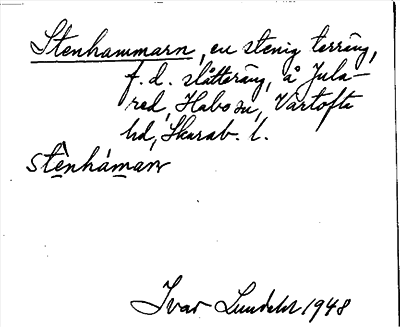 Stenhammarn, en stenig terräng,
f. d. slåtteräng, å Jula-
red, Habo sn, Vartofta
hd, Skarab. l.
stènháman
Ivar Lundahl 1948